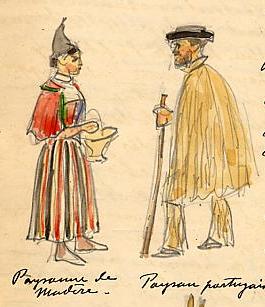 Paysanne de
Madère.
Paysan portugais